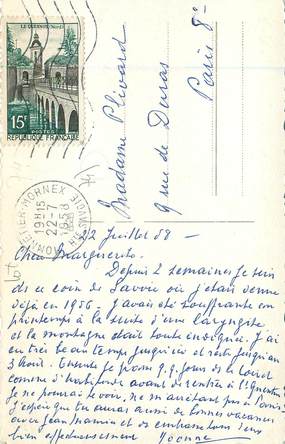 LE QUESNOY (Nord)
15F
POSTES
REPUBLIQUE FRANÇAISE
MONNETIER-MORNEX
HTE SAVOIE
19H15
22-7
1958
Madame Plivard
9 rue de Duras
Paris 8e
22 Juillet 58 -
Chère Marguerite.
Depuis 2 semaines je suis
ds ce coin de Savoie où j'étais venue
déjà en 1956. J'avais été souffrante ce
printemps à la suite d'une laryngite
et la montagne était toute indiquée. J'ai
eu très beau temps jusqu'ici et reste jusqu'au
3 Août. Ensuite je qq. jours de
comme d'habitude avant de rentrer à
Je ne pourrai te voir, ne m'arrêtant pas à Paris.
J'espère que tu auras aussi de bonnes vacances
avec Jean Marie et vs embrasse tous
bien affectueusement Yvonne